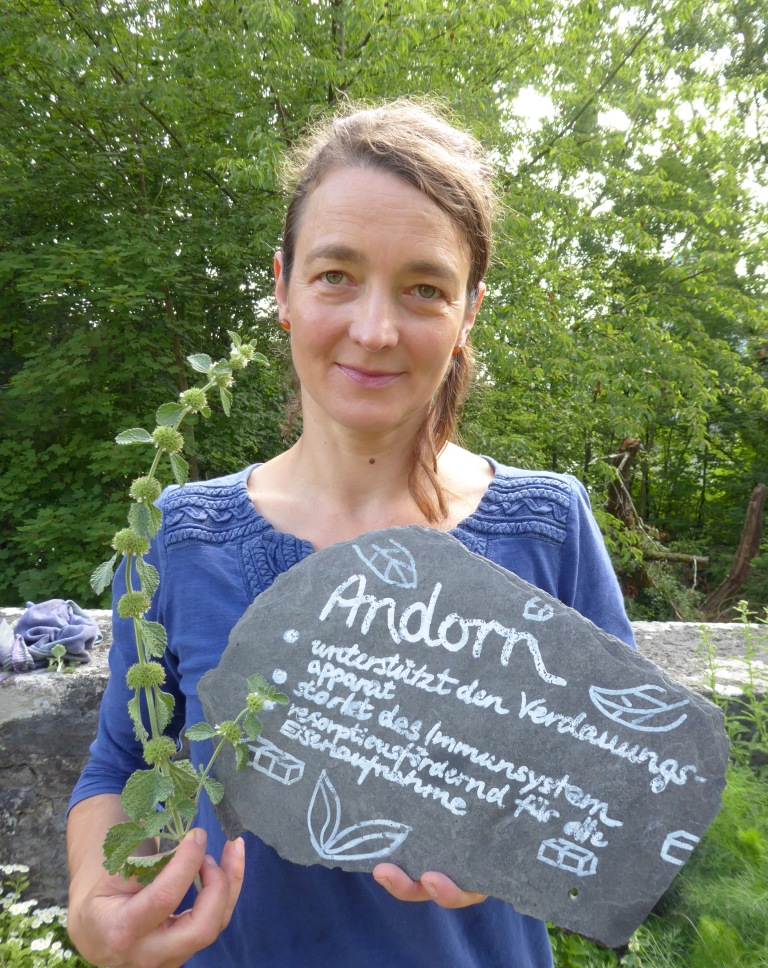 Andorn
• unterstützt den Verdauungs-
apparat
• stärkt des Immunsystem
resorptionsfördernd für die
Eisenaufnahme